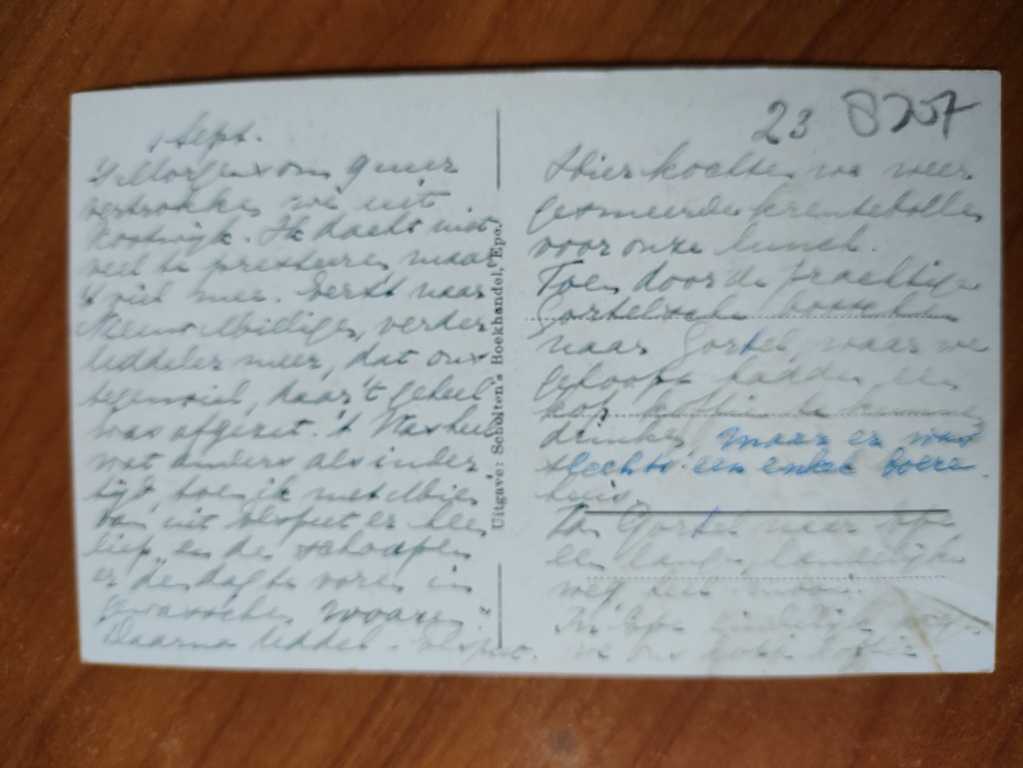 1 Sept.
's Morgens om 9 uur
vertrokken we uit
Kootwijk. Ik dacht niet
veel te presteeren, maar
't viel mee. Eerst naar
Nieuw Milligen, verder
Uddeler meer, dat ons
tegenviel, daar 't geheel
was afgezet. 't Was heel
wat anders als indertijd
toen ik met Mien
van uit Elspeet er heen
liep, en de schaapen
er des daags te voren in
gewasschen waaren.
Daarna Uddel - Elspeet.
Uitgave: Scholten's Boekhandel, Epe.
23 8707
Hier kochten we weer
gesmeerde krentebollen
voor onze lunch.
Toen door de prachtige
Gortelsche bosschen
naar Gortel, waar we
gehoopt hadden een
kop koffie te kunnen
drinken, maar er was
slechts een enkel boere
huis.
Gortel naar Epe
een lange, landelijke
weg heel mooi.
In Epe eindelijk
we ons kopje koffie